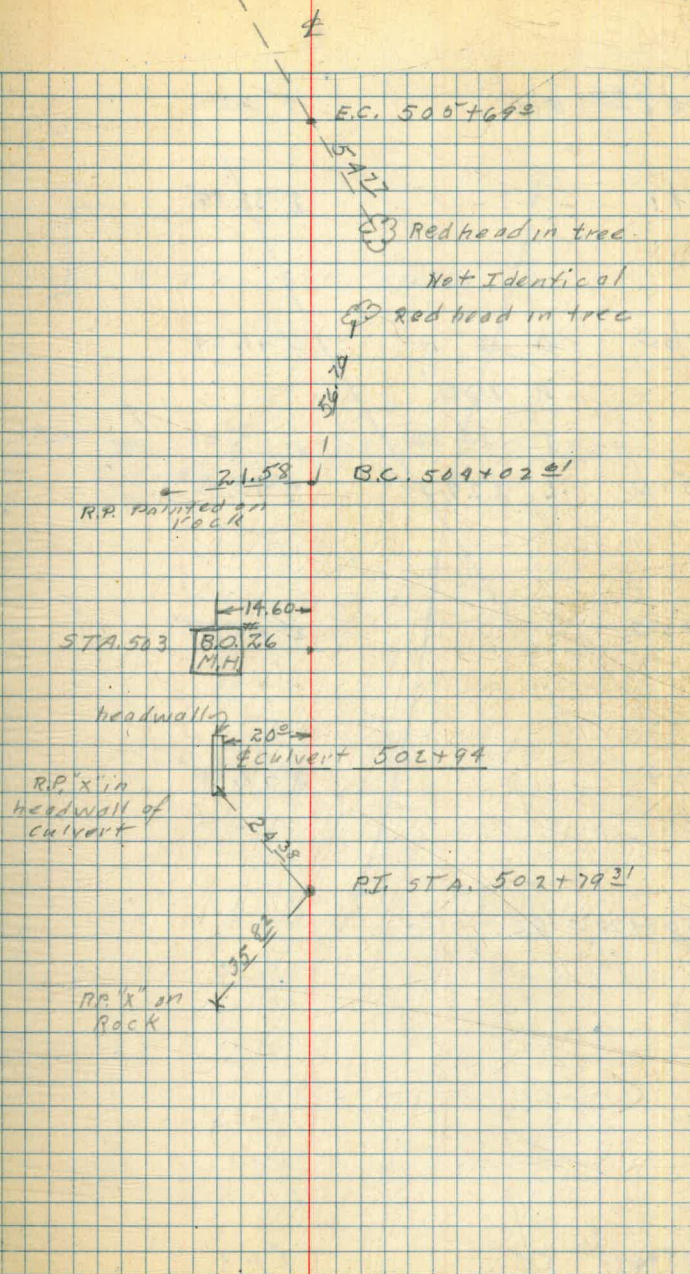 ℄
E.C. 505+69
54 77
Red head in tree
Not Identical
Red head in tree
56.29
21.58
B.C. 504+02 01
R.P. Painted on
rock
14.60
STA. 503
B.O. #26
M.H
headwall
20 0
℄ culvert 502+94
R.P. "x" in
headwall of
culvert
24 38
P.I. STA. 502+79 31
35 82
R.P. "X" on
Rock